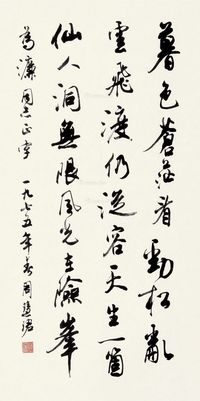 暮色蒼茫看勁松亂
雲飛渡仍從容天生一箇
仙人洞無限風光在險峯
為濂同志正字 一九七五年春周慧珺